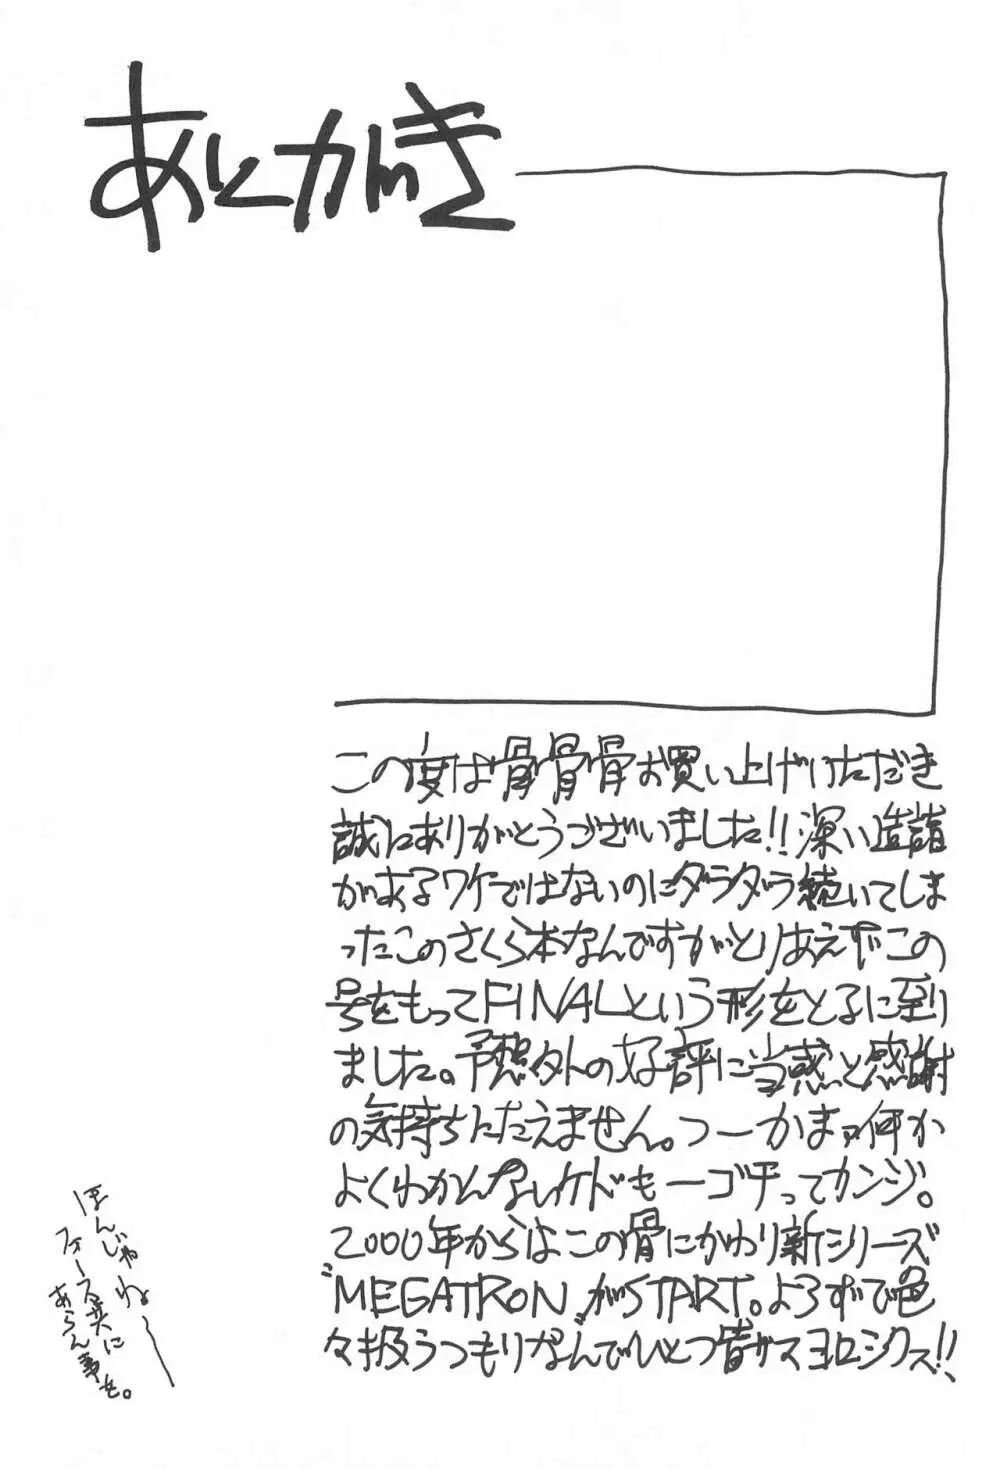 あとがき
この度は骨骨骨お買い上げいただき
誠にありがとうございました!!深い造詣
があるワケではないのにダラダラ続いてしま
ったこのさくら本なんですがとりあえずこの
号をもってFINALという形をとるに至り
ました。予想外の好評に当惑と感謝
の気持ちにたえません。つーかまァ何か
よくわかんないケドも一ゴチってカンジ。
2000年からはこの骨にかわり新シリーズ
"MEGATRON"がSTART。よろずで色
々扱うつもりなんでひとつ皆サマヨロシクス!!
ほんじゃね〜
フォースと共に
あらん事を。